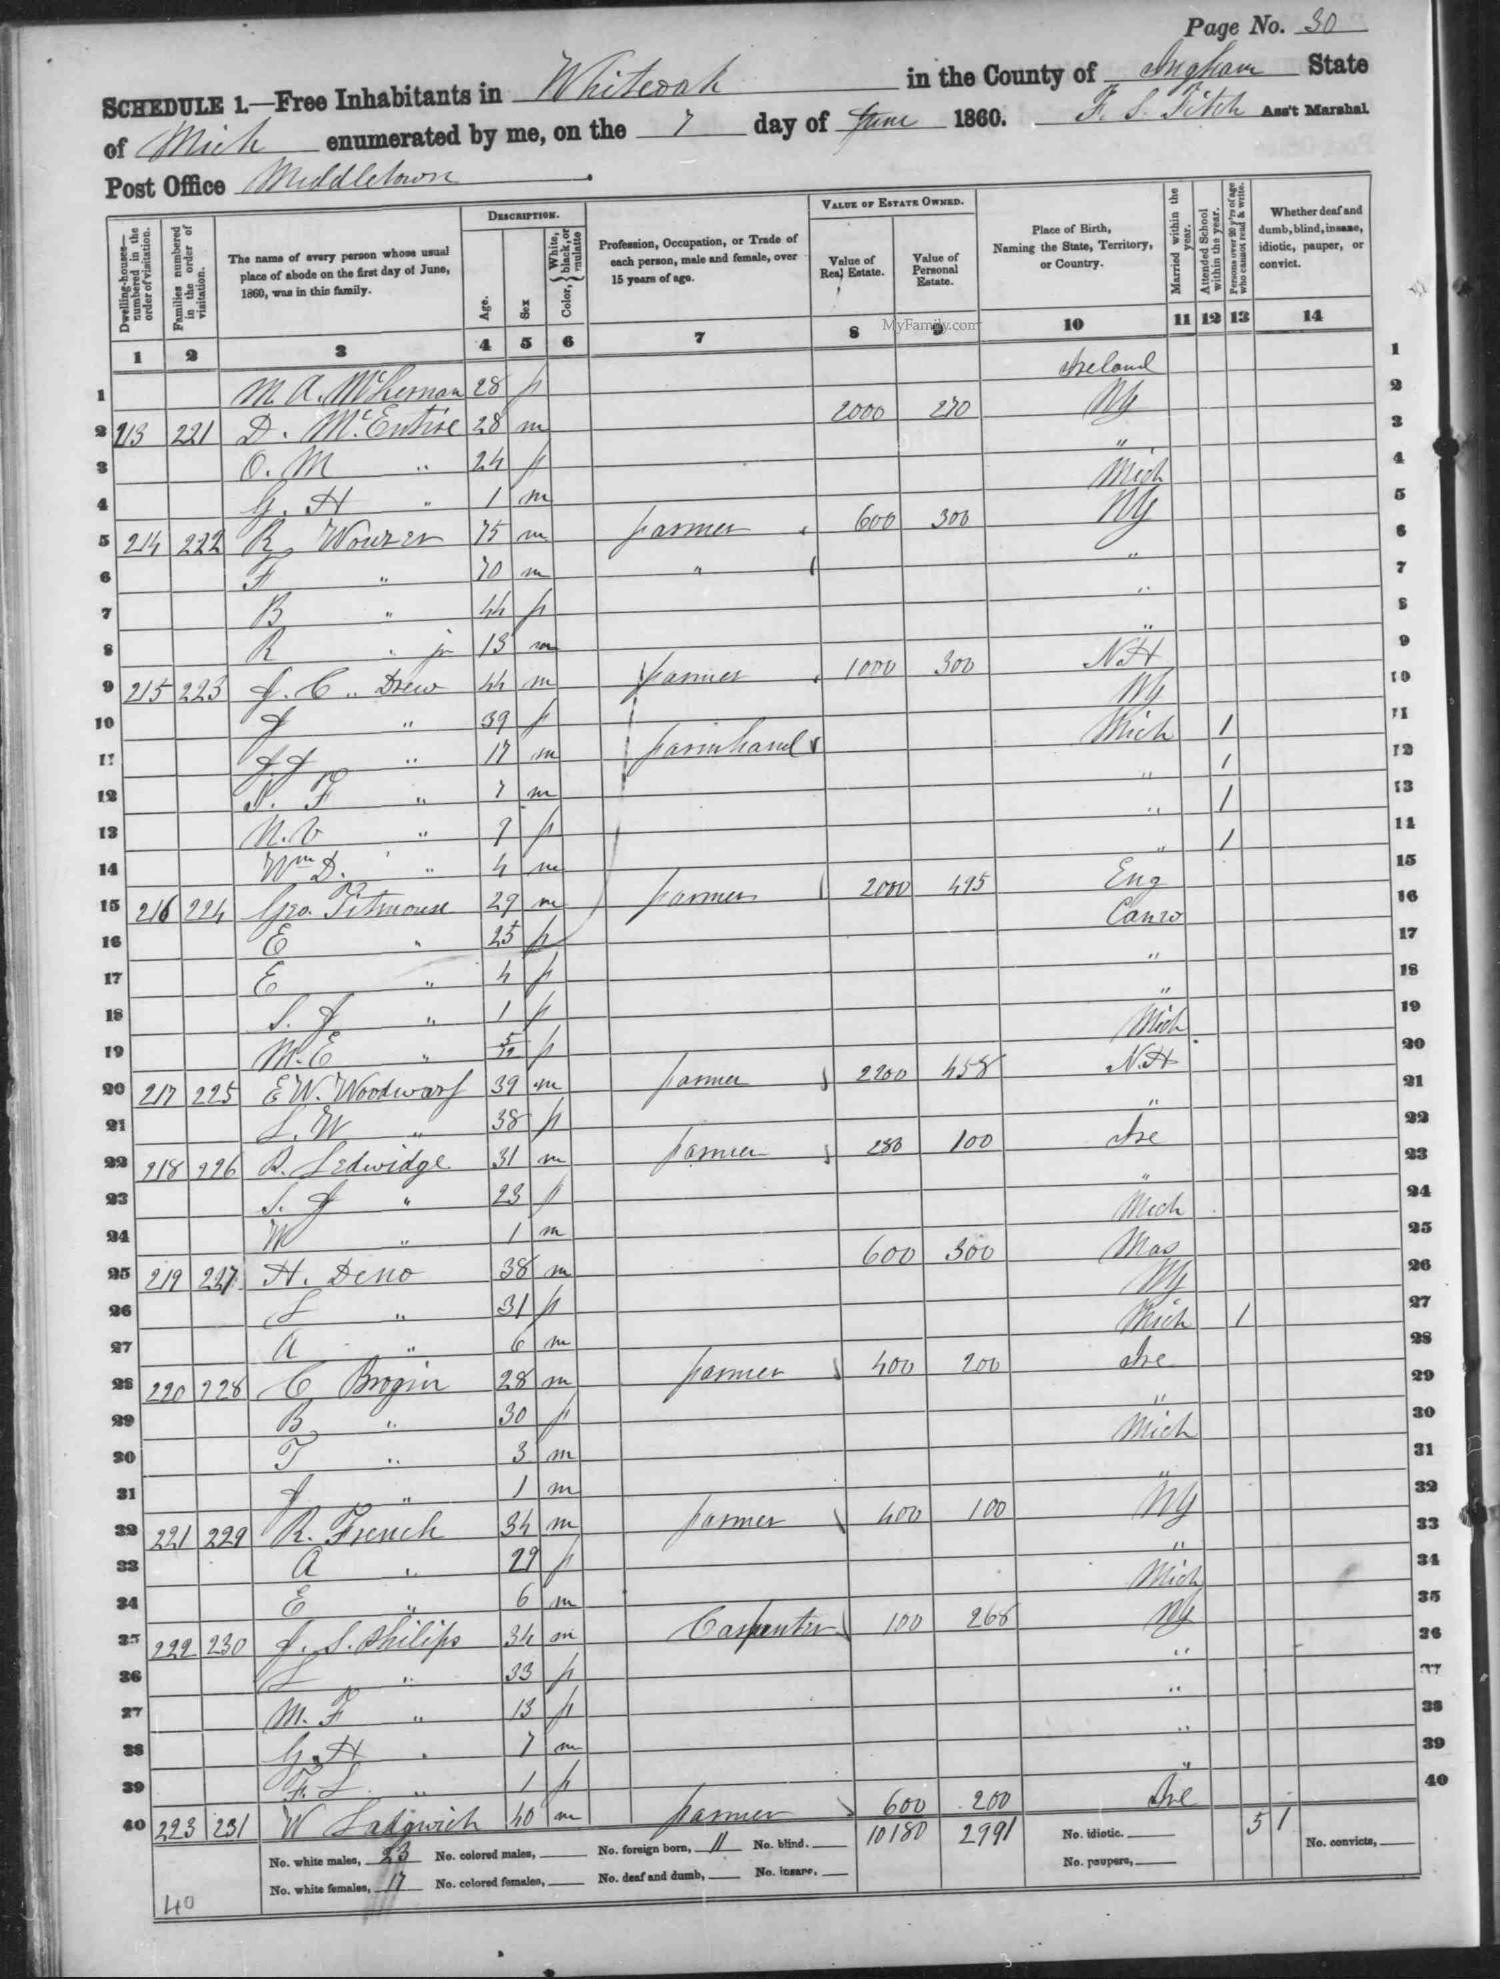 Page No. 30
SCHEDULE 1.—Free Inhabitants in Whiteoak in the County of Ingham State
of Mich enumerated by me, on the 7 day of June 1860. F. S. Fitch Ass't Marshal
Post Office Middletown
Dwelling-houses—numbered in the order of visitation.
Families numbered in the order of visitation.
The name of every person whose usual place of abode on the first day of June, 1860, was in this family.
DESCRIPTION.
Age.
Sex
Color, { White, black, or mulatto
Profession, Occupation, or Trade of each person, male and female, over 15 years of age.
VALUE OF ESTATE OWNED.
Value of Real Estate.
Value of Personal Estate.
Place of Birth, Naming the State, Territory, or Country.
Married within the year.
Attended School within the year.
Persons over 20 y'rs of age who cannot read & write.
Whether deaf and dumb, blind, insane, idiotic, pauper, or convict.
1 2 3 4 5 6 7 8 9 10 11 12 13 14
MyFamily.com
1 M A. 28 f Ireland 1
2 213 221 D. McEntire 28 m 2000 270 Ny 2
3 O. M " 24 f " 3
4 G. H " 1 m Mich 4
5 214 222 R 75 m farmer 600 300 Ny 5
6 F " 70 m " " 6
7 B " 44 f " 7
8 R " jr 13 m " 8
9 215 223 J. C. Drew 44 m farmer 1000 300 N.H 9
10 J " 39 f Ny 10
11 J. J " 17 m farmhand Mich 1 11
12 F " 7 m " 1 12
13 N. V " 9 f " 1 13
14 Wm D. " 4 m " 1 14
15 216 224 Geo. Titmouse 29 m farmer 2000 495 Eng 15
16 E " 25 f 16
17 E " 4 f " 17
18 S. J " 1 f " 18
19 M. E " 5/12 f Mich 19
20 217 225 E W. Woodward 39 m farmer 2200 458 N.H 20
21 L. W " 38 f " 21
22 218 226 R. Ledwidge 31 m farmer 280 100 Ire 22
23 S. J " 23 f " 23
24 W " 1 m Mich 24
25 219 227 H. Deno 38 m 600 300 Mas 25
26 L " 31 f Ny 26
27 A " 6 m Mich 1 27
28 220 228 C Brogin 28 m farmer 400 200 Ire 28
29 B " 30 f " 29
30 T " 3 m Mich 30
31 J " 1 m " 31
32 221 229 R. French 34 m farmer 400 100 Ny 32
33 A " 29 f " 33
34 E " 6 m Mich 34
35 222 230 J. S. Philips 34 m Carpenter 100 268 Ny 35
36 L " 33 f " 36
37 M. F " 13 f " 37
38 G. H " 7 m " 38
39 F. L " 1 f " 39
40 223 231 W 40 m farmer 600 200 Ire 40
No. white males, 23 No. colored males, No. foreign born, 11 No. blind. 10180 2991 No. idiotic. 5 1 No. convicts,
No. white females, 17 No. colored females, No. deaf and dumb, No. insane, No. paupers,
40